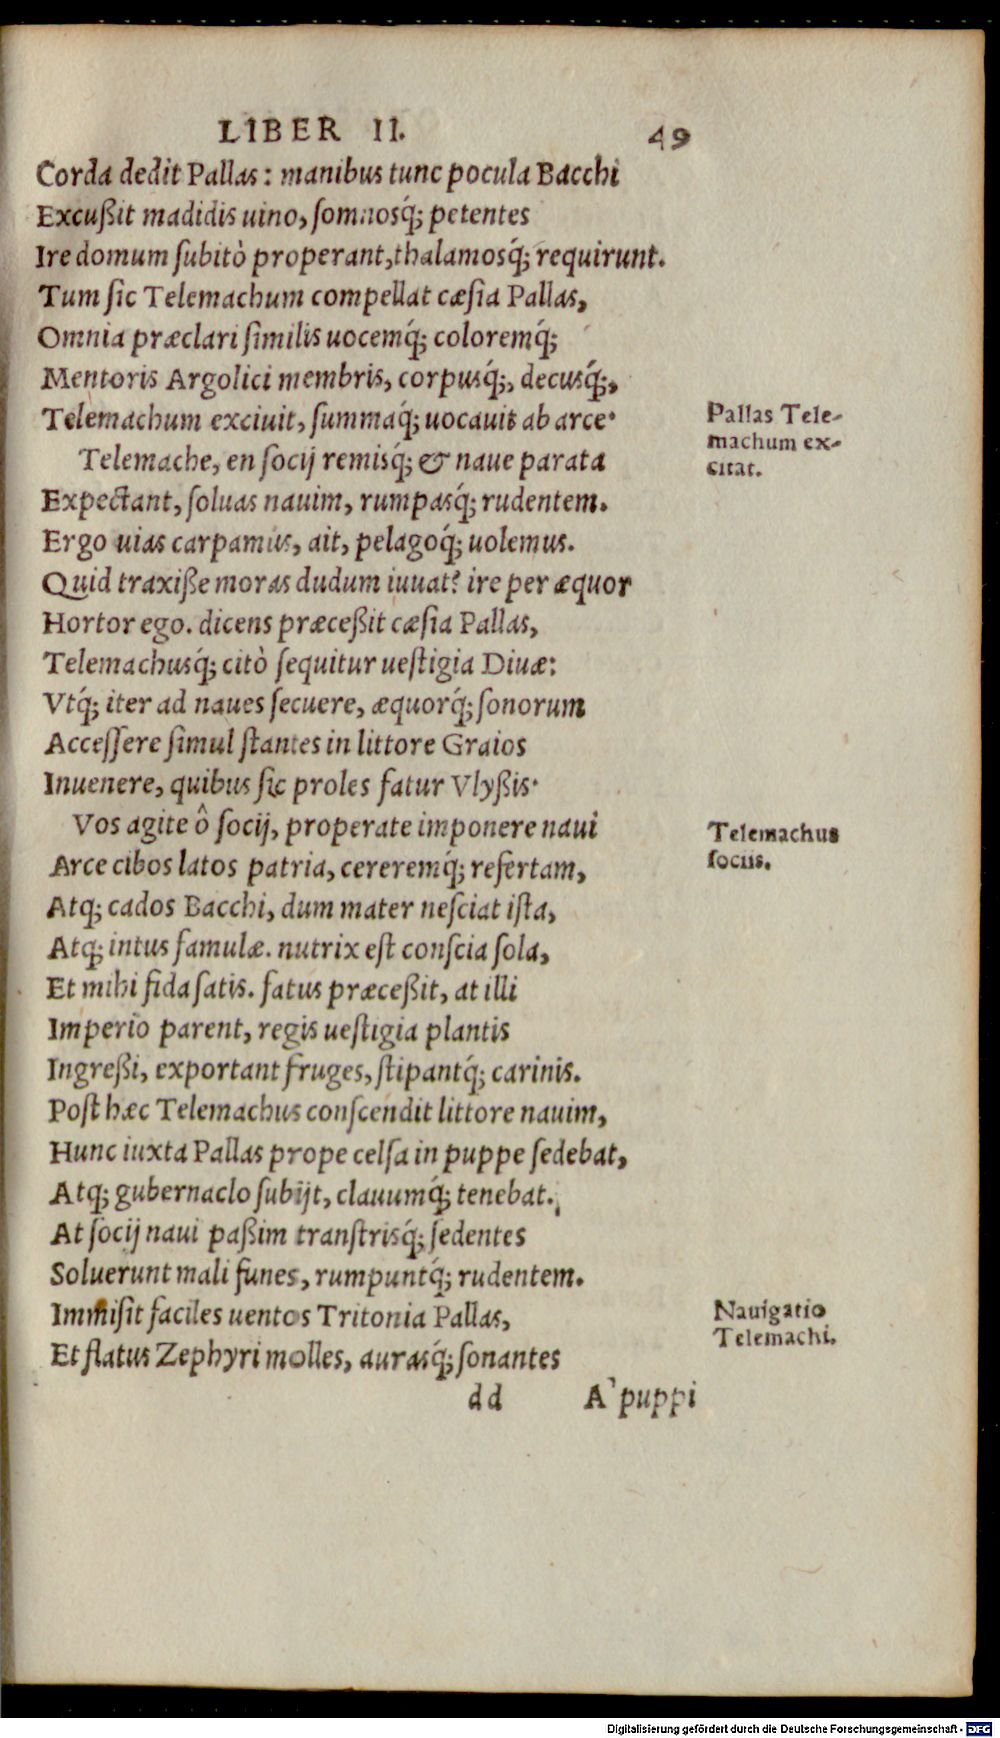 LIBER II. 49
Corda dedit Pallas: manibus tunc pocula Bacchi
Excußit madidis uino, somnosq́; petentes
Ire domum subitò properant, thalamosq́; requirunt.
Tum sic Telemachum compellat cæsia Pallas,
Omnia præclari similis uocemq́; coloremq́;
Mentoris Argolici membris, corpusq́;, decusq́;,
Telemachum exciuit, summaq́; uocauit ab arce.
Pallas Tele-
machum ex-
citat.
Telemache, en socij remisq́; & naue parata
Expectant, soluas nauim, rumpasq́; rudentem.
Ergo uias carpamus, ait, pelagoq́; uolemus.
Quid traxiße moras dudum iuuat? ire per æquor
Hortor ego. dicens præceßit cæsia Pallas,
Telemachusq́; citò sequitur uestigia Diuæ:
Vtq́; iter ad naues secuere, æquorq́; sonorum
Accessere simul stantes in littore Graios
Inuenere, quibus sic proles fatur Vlyßis.
Vos agite ô socij, properate imponere naui
Telemachus
sociis.
Arce cibos latos patria, cereremq́; refertam,
Atq; cados Bacchi, dum mater nesciat ista,
Atq; intus famulæ. nutrix est conscia sola,
Et mihi fida satis. fatus præceßit, at illi
Imperio parent, regis uestigia plantis
Ingreßi, exportant fruges, stipantq́; carinis.
Post hæc Telemachus conscendit littore nauim,
Hunc iuxta Pallas prope celsa in puppe sedebat,
Atq; gubernaclo subijt, clauumq́; tenebat.
At socij naui paßim transtrisq́; sedentes
Soluerunt mali funes, rumpuntq́; rudentem.
Immisit faciles uentos Tritonia Pallas,
Nauigatio
Telemachi.
Et flatus Zephyri molles, aurasq́; sonantes
dd A' puppi
Digitalisierung gefördert durch die Deutsche Forschungsgemeinschaft - DFG